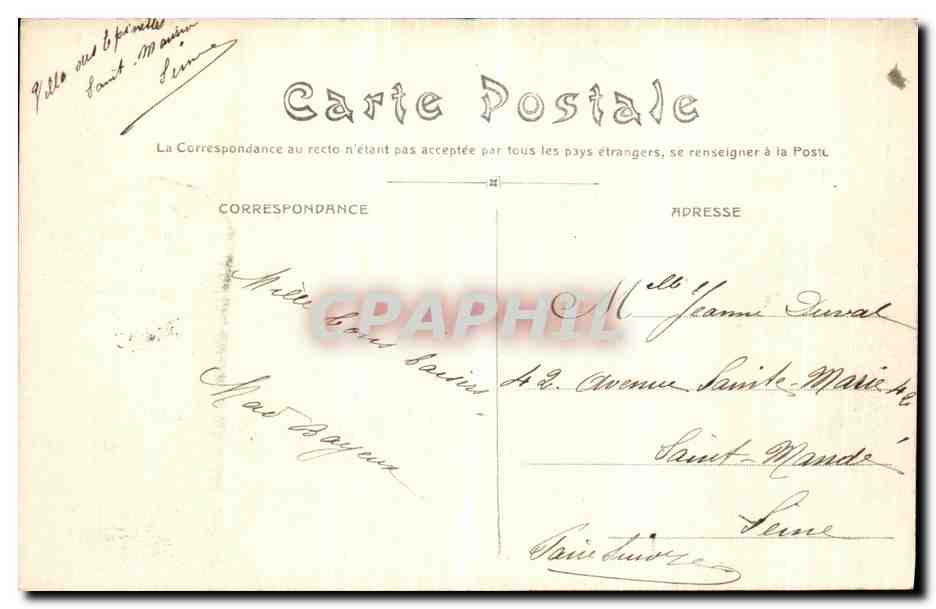 Villa des Epinettes
Saint-Maurice
Seine
Carte Postale
La Correspondance au recto n'étant pas acceptée par tous les pays étrangers, se renseigner à la Poste
CORRESPONDANCE
ADRESSE
Mille bons baisers
Mad Bayeux
Melle Jeanne Duval
42. Avenue Sainte-Marie 42
Saint-Mandé
Seine
Faire Suivre
CPAPHIL